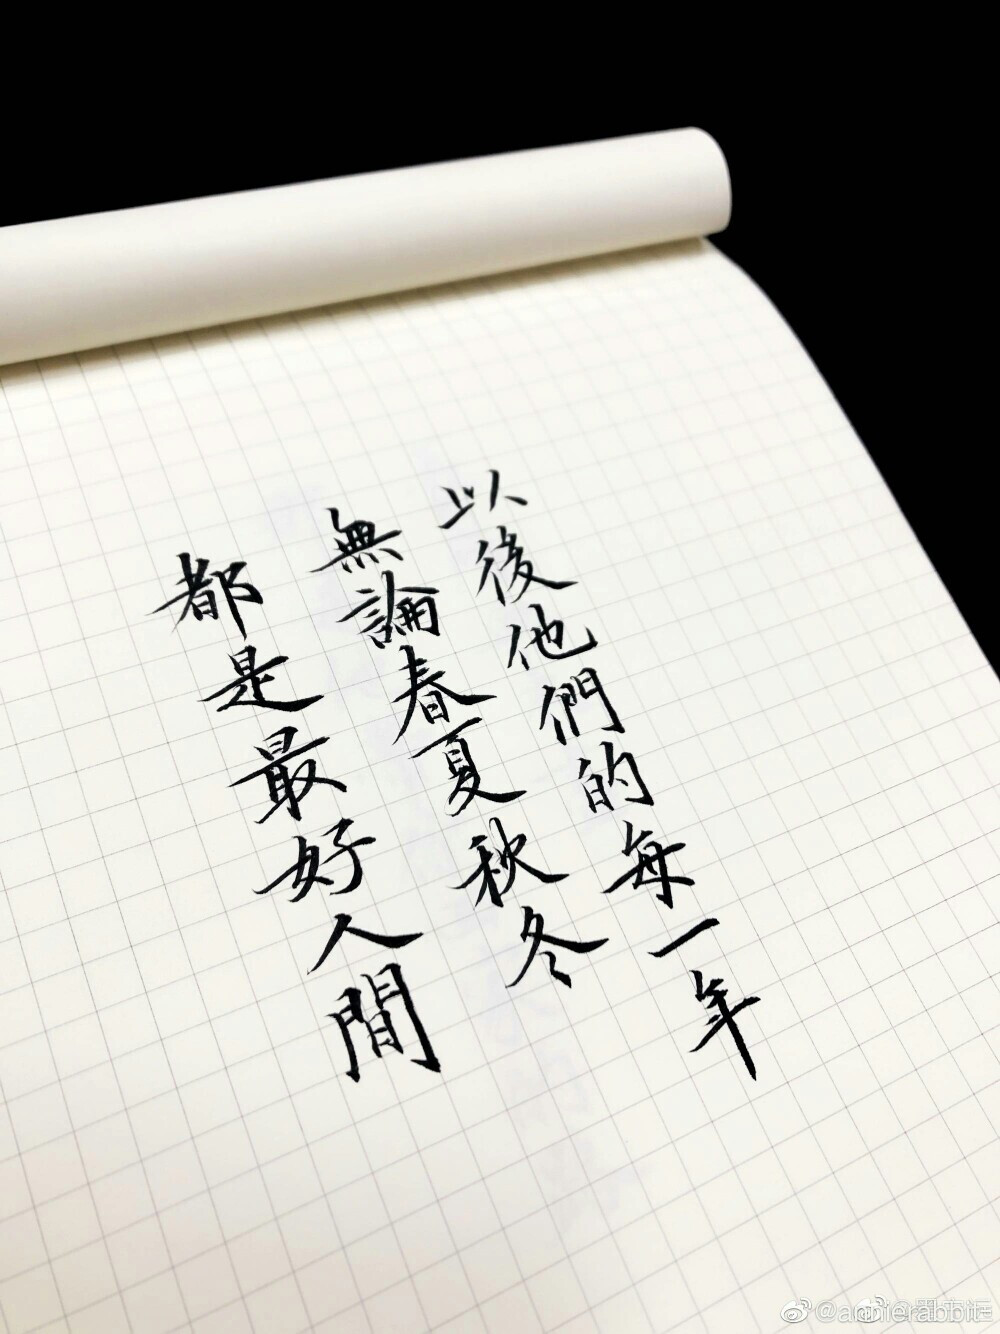 以後他們的每一年
無論春夏秋冬
都是最好人間